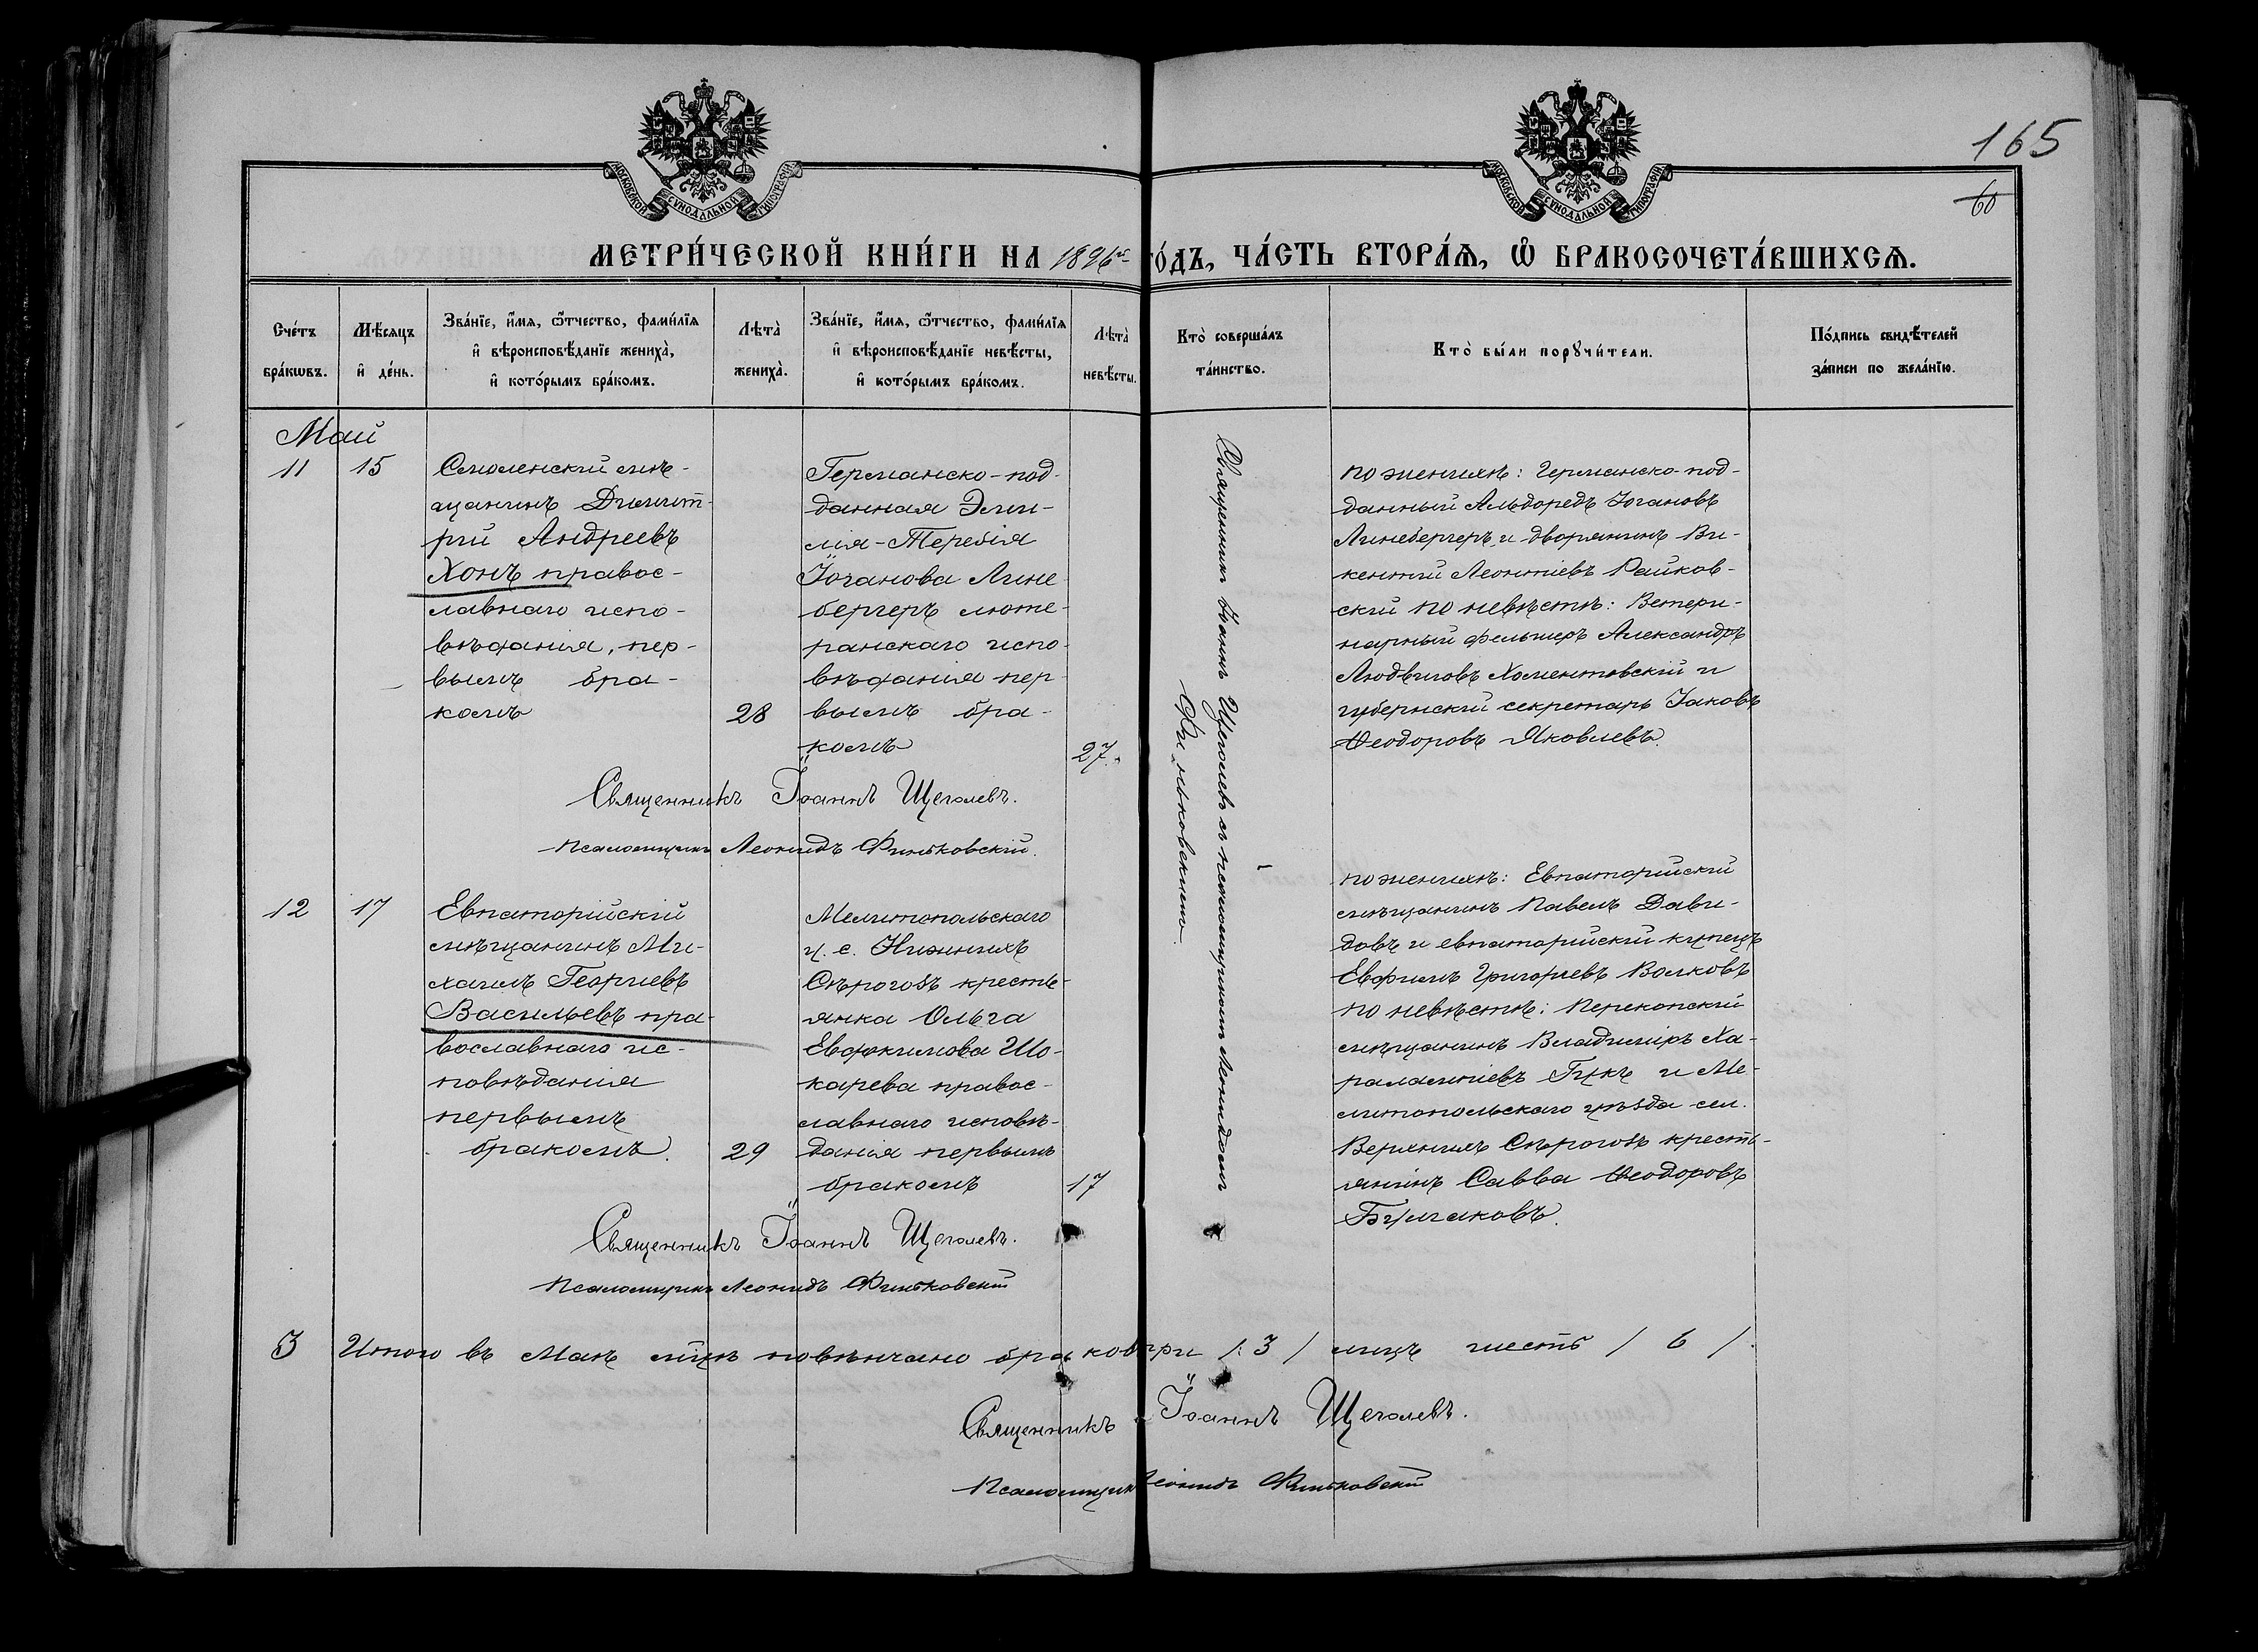 165
60
МОСКОВСКОЙ СѴНОДАЛЬНОЙ ТИПОГРАФІИ
МОСКОВСКОЙ СѴНОДАЛЬНОЙ ТИПОГРАФІИ
МЕТРИ́ЧЕСКОЙ КНИ́ГИ НА 1896й ГО́ДЪ, ЧА́СТЬ ВТОРА́Ѧ, Ѡ҆ БРАКОСОЧЕТА́ВШИХСѦ.
Сче́тъ бра́кѡвъ.
Мѣ́сяцъ и҆ де́нь.
Зва́нїе, и҆́мѧ, ѻ҆́тчество, фами́лїѧ
и҆ вѣроисповѣ́данїе жениха̀,
и҆ кото́рымъ бра́комъ.
Лѣта̀ жениха̀.
Зва́нїе, и҆́мѧ, ѻ҆́тчество, фами́лїѧ
и҆ вѣроисповѣ́данїе невѣ́сты,
и҆ кото́рымъ бра́комъ.
Лѣта̀ невѣ́сты.
Кто̀ соверша́лъ
та́инство.
Кто̀ бы́ли порꙋчи́тели.
По́дпись свидѣ́телей
за́писи по жела́нїю.
Май
11
15
Смоленскій мѣ-
щанинъ Димит-
рій Андреевъ
Хонъ правос-
лавнаго испо-
вѣданія, пер-
вымъ бра-
комъ
28
Германско-под-
данная Эми-
лія-Терезія
Іоганова Лине-
бергеръ люте-
ранскаго испо-
вѣданія пер-
вымъ бра-
комъ
27.
Священникъ Іоаннъ Щеголевъ съ псаломщикомъ Леонидомъ
Финьковскимъ.
по женихѣ: Германско-под-
данный Альфредъ Іогановъ
Линебергеръ и дворянинъ Ви-
кентій Леонтіевъ Райков-
скій по невѣстѣ: Ветери-
нарный фельшеръ Александръ
Людвиговъ Хоментовскій и
губернскій секретарь Іаковъ
Ѳеодоровъ Яковлевъ.
Священникъ Іоаннъ Щеголевъ.
Псаломщикъ Леонидъ Финьковскій.
12
17
Евпаторійскій
мѣщанинъ Ми-
хаилъ Георгіевъ
Васильевъ пра-
вославнаго ис-
повѣданія
первымъ
бракомъ.
29
Мелитопольскаго
у. с. Нижнихъ
Сѣрогозъ кресть-
янка Ольга
Евфимова Шо-
карева правос-
лавнаго исповѣ-
данія первымъ
бракомъ
17
по женихѣ: Евпаторійскій
мѣщанинъ Павелъ Дави-
довъ и евпаторійскій купецъ
Евфимъ Григорьевъ Волковъ
по невѣстѣ: Перекопскій
мѣщанинъ Владиміръ Ха-
ралампіевъ Гукъ и Ме-
литопольскаго уѣзда сел.
Верхнихъ Сѣрогозъ кресть-
янинъ Савва Ѳеодоровъ
Бурлаковъ.
Священникъ Іоаннъ Щеголевъ.
Псаломщикъ Леонидъ Финьковскій
3 Итого въ Маѣ мцѣ повѣнчано браковъ три /:3/ лицъ шесть /6/.
Священникъ Іоаннъ Щеголевъ.
Псаломщикъ Леонидъ Финьковскій